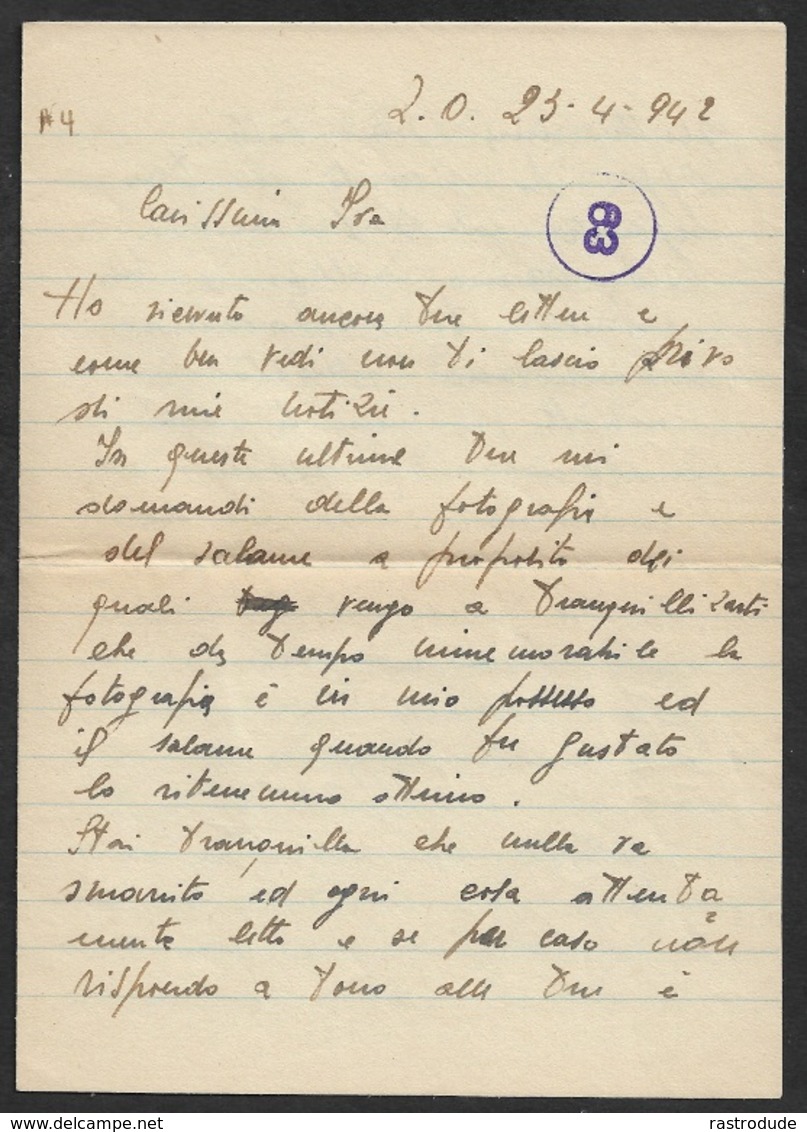 Z.O. 23-4-942
A4
Carissima Isa
63
Ho ricevuto ancora due lettere e
come ben vedi non ti lascio privo
di mie notizie.
In queste ultime due mi
domandi della fotografia e
del salame a proposito dei
quali vengo a tranquillizzarti
che da tempo immemorabile la
fotografia è in mio possesso ed
il salame quando fu gustato
lo ritenemmo ottimo.
Stai tranquilla che nulla va
smarrito ed ogni cosa attenta=
mente letto e se per caso non
rispondo a tono alle tue è
delcampe.net
rastrodude